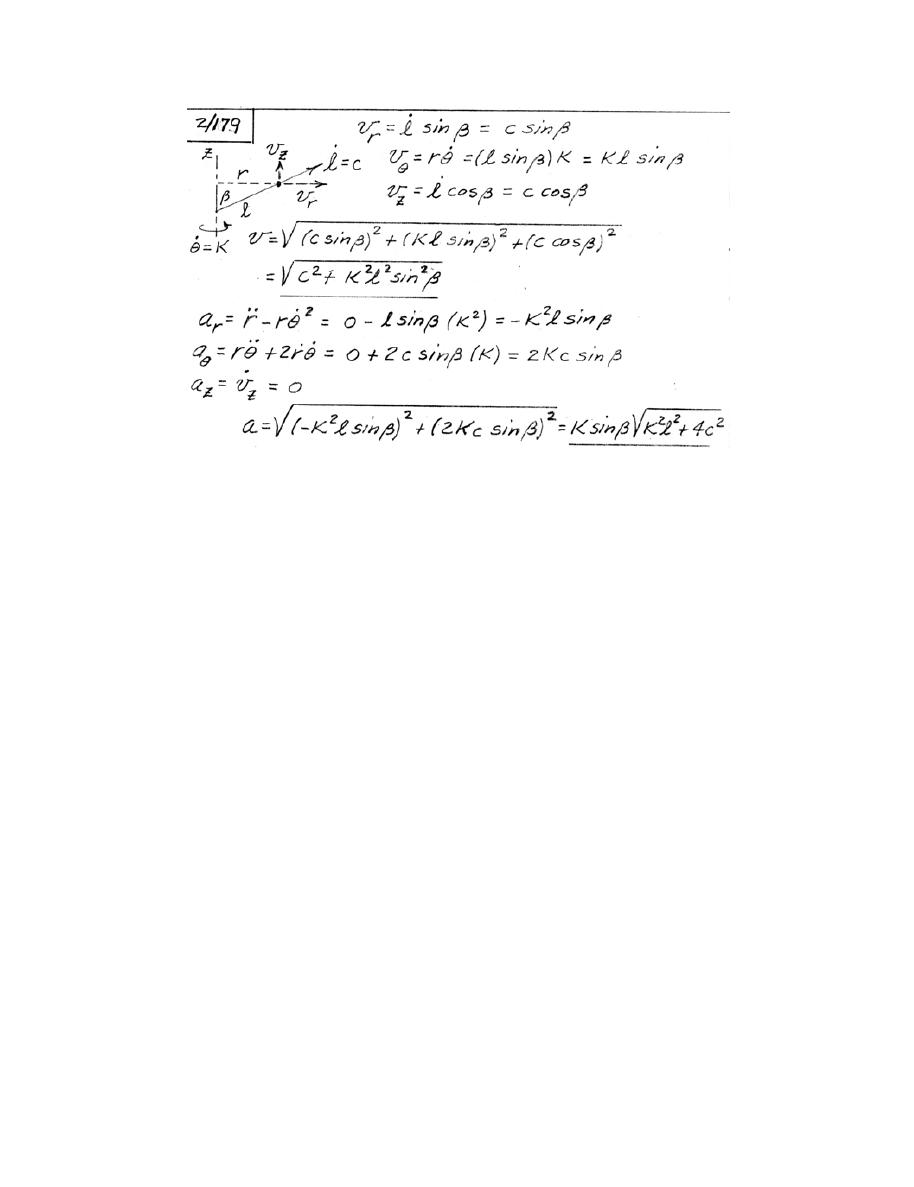 2/179
v_r = l̇ sin β = c sin β
z v_z l̇ = c v_θ = rθ̇ = (l sin β) K = K l sin β
r
β l v_r v_z = l̇ cos β = c cos β
θ̇ = K v = √((c sin β)² + (K l sin β)² + (c cos β)²)
= √(c² + K²l² sin²β)
a_r = r̈ - rθ̇² = 0 - l sin β (K²) = -K²l sin β
a_θ = rθ̈ + 2ṙθ̇ = 0 + 2c sin β (K) = 2Kc sin β
a_z = v̇_z = 0
a = √((-K²l sin β)² + (2Kc sin β)²) = K sin β √(K²l² + 4c²)